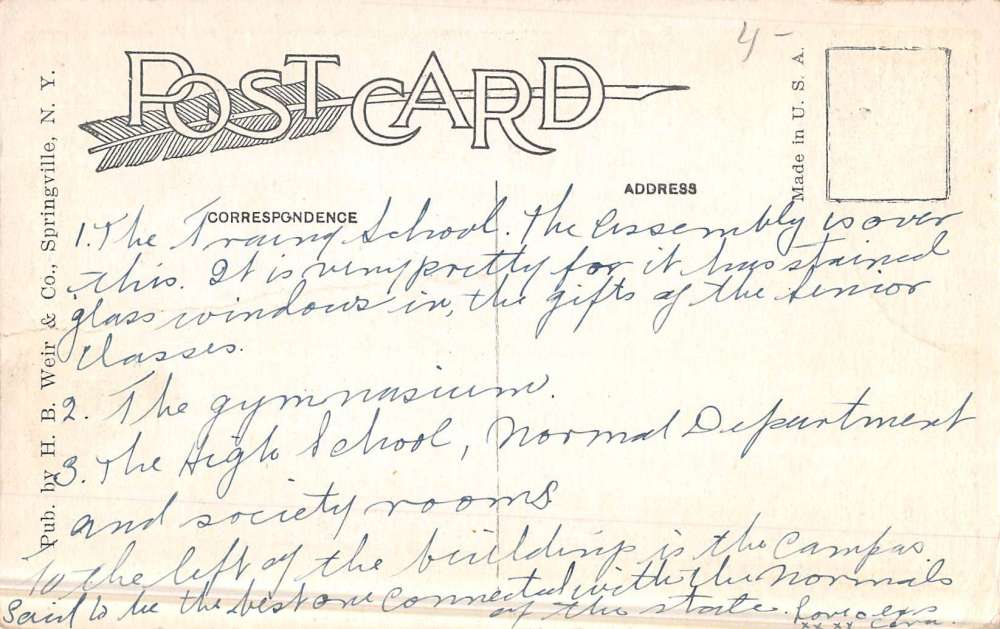 4-
POST CARD
Made in U. S. A.
ADDRESS
CORRESPONDENCE
Pub. by H. B. Weir & Co., Springville, N. Y.
1. The Traing School. The Assembly is over
this. It is very pretty for it has stained
glass windows in, the gifts of the Senior
Classes.
2. The gymnasium.
3. The High School, Normal Department
and society rooms
To the left of the building is the Campas.
Said to be the best one connected with the Normals
of the state. Love
xx xx Cora.